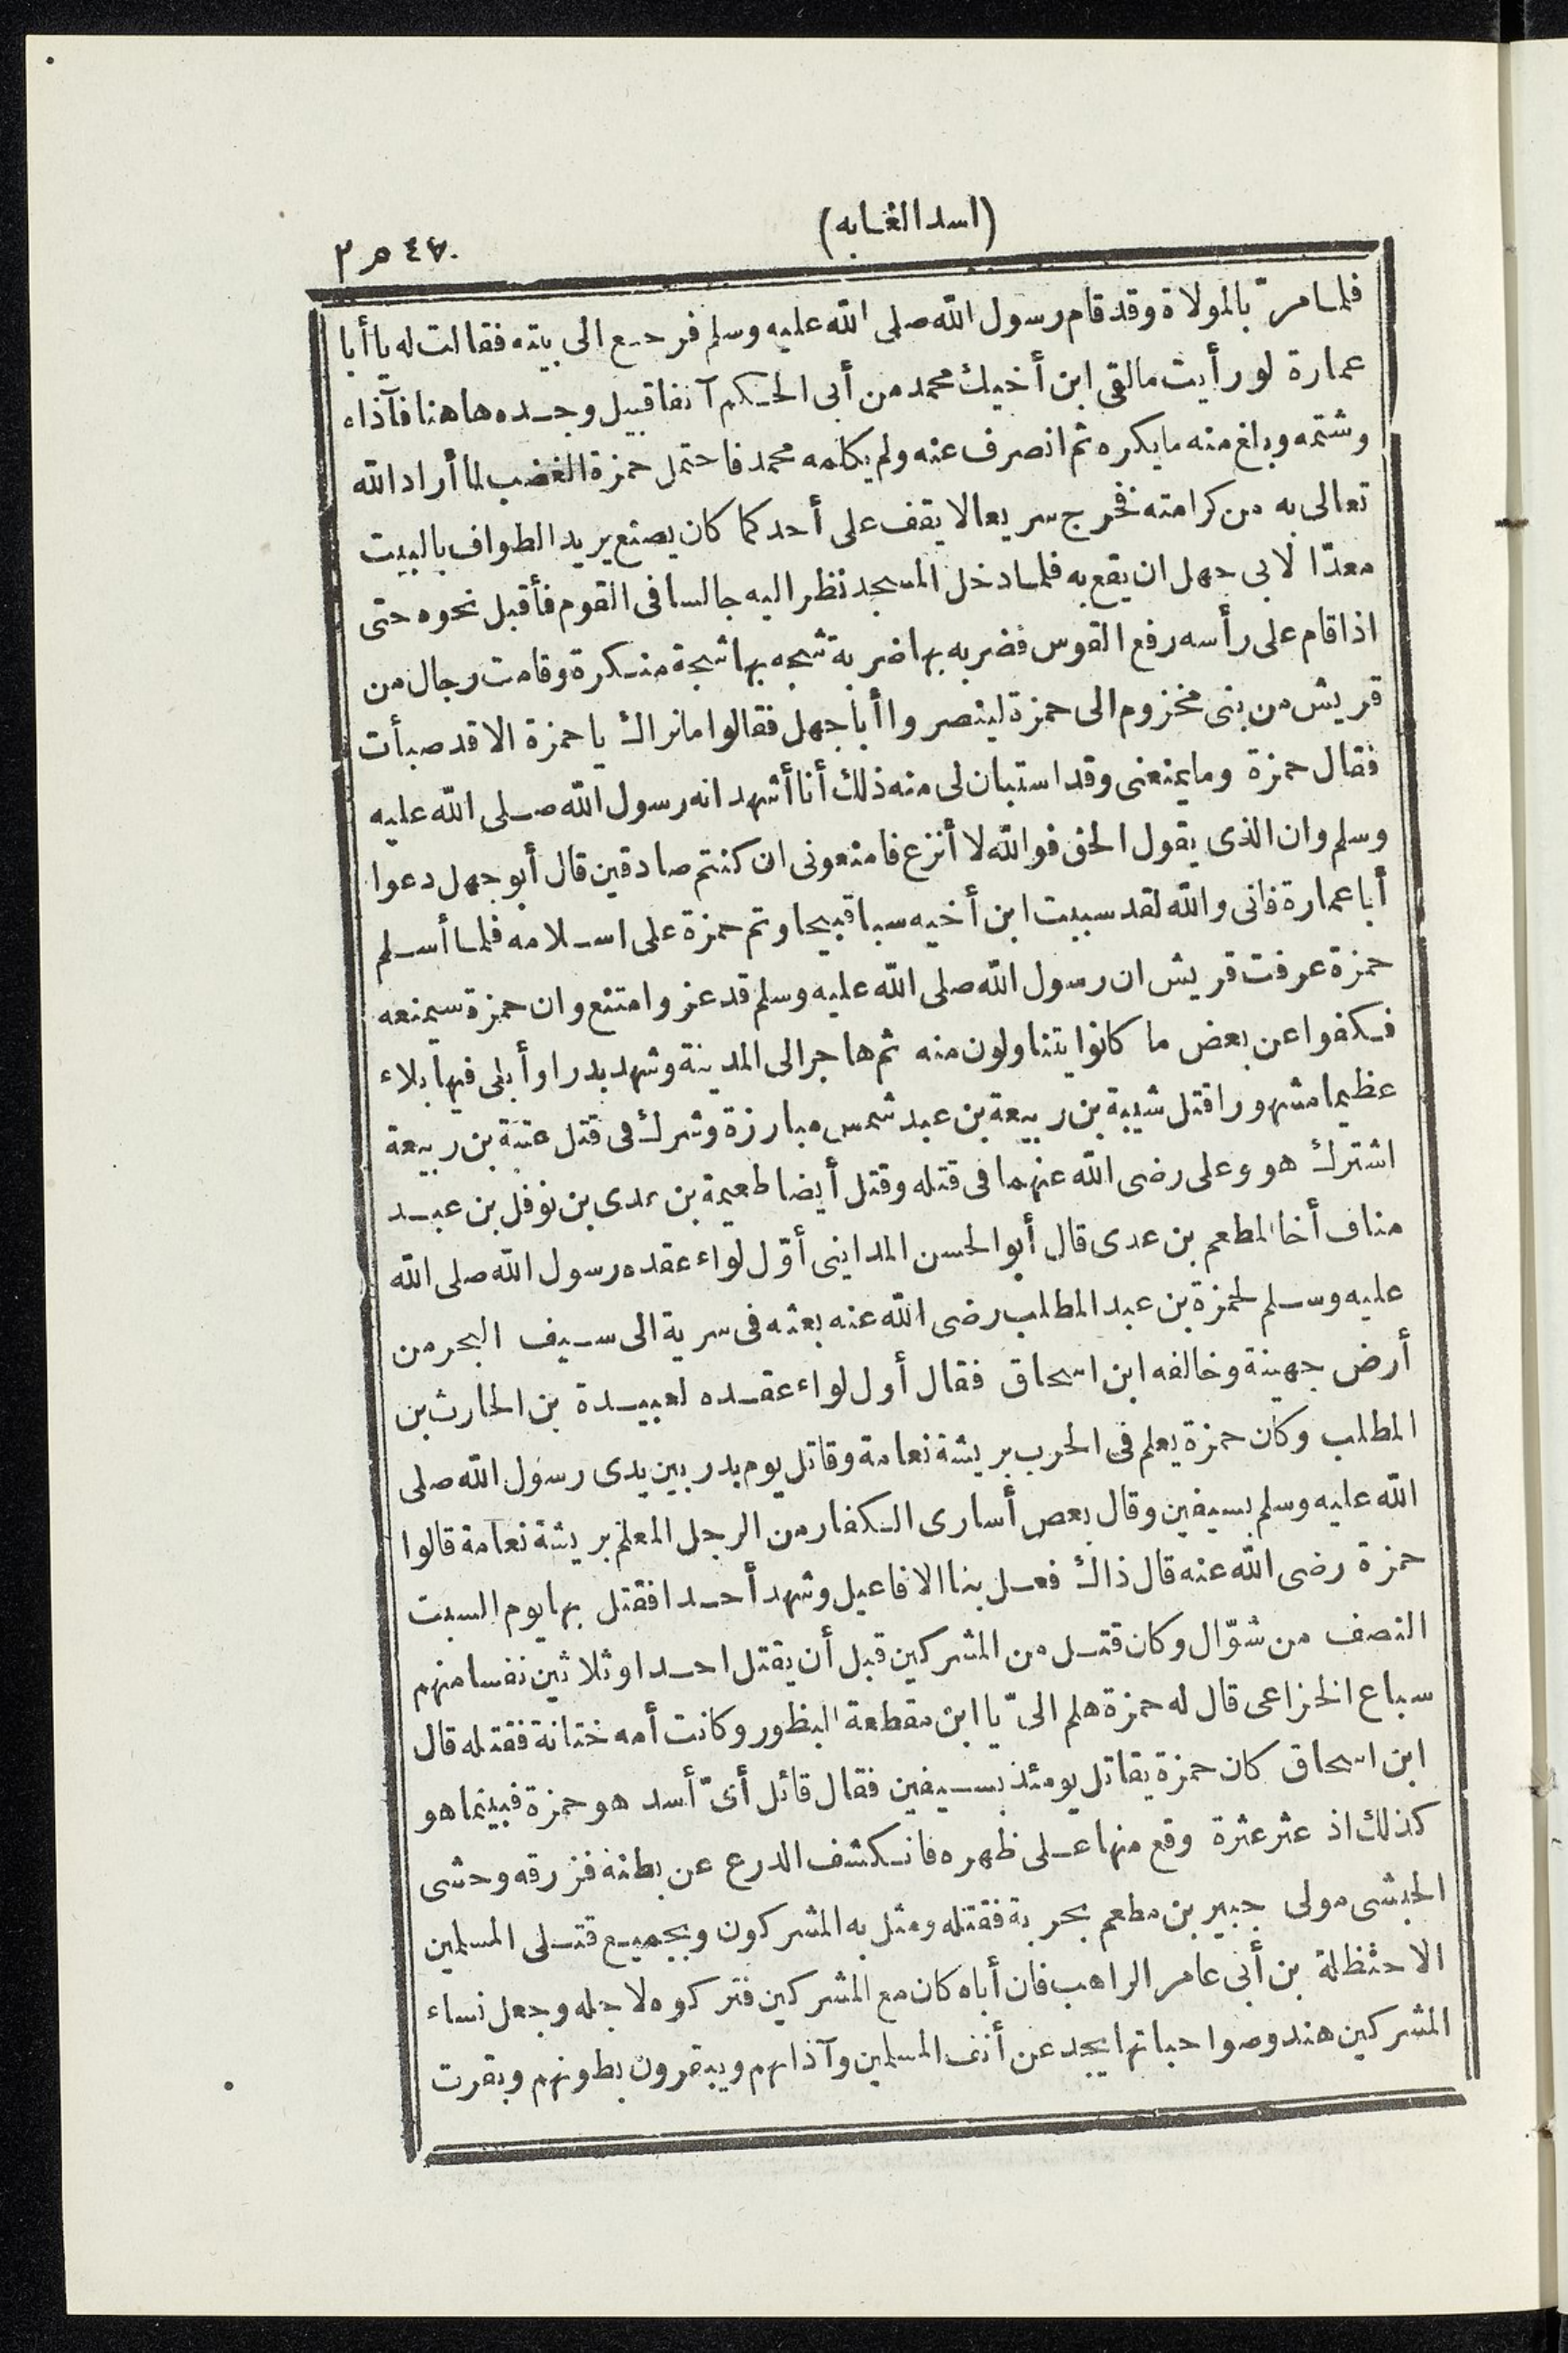 (اسد الغابه)
٤٧٠ ص ٢
فلما مرّ بالمولاة وقد قام رسول الله صلى الله عليه وسلم فرجع الى بيته فقالت له يا أبا
عمارة لو رأيت ما لقى ابن أخيك محمد من أبى الحكم آنفا قبيل وجده هاهنا فآذاه
وشتمه وبلغ منه ما يكره ثم انصرف عنه ولم يكلمه محمد فاحتمل حمزة الغضب لما أراد الله
تعالى به من كرامته فخرج سريعا لا يقف على أحد كما كان يصنع يريد الطواف بالبيت
معدّا لابى جهل ان يقع به فلما دخل المسجد نظر اليه جالسا فى القوم فأقبل نحوه حتى
اذا قام على رأسه رفع القوس فضربه بها ضربة شجه بها شجة منكرة وقامت رجال من
قريش من بنى مخزوم الى حمزة لينصروا أبا جهل فقالوا ما نراك يا حمزة الا قد صبأت
فقال حمزة وما يمنعنى وقد استبان لى منه ذلك أنا أشهد انه رسول الله صلى الله عليه
وسلم وان الذى يقول الحق فوالله لا أنزع فامنعونى ان كنتم صادقين قال أبو جهل دعوا
أبا عمارة فانى والله لقد سببت ابن أخيه سبا قبيحا وتم حمزة على اسلامه فلما أسلم
حمزة عرفت قريش ان رسول الله صلى الله عليه وسلم قد عز وامتنع وان حمزة سيمنعه
فكفوا عن بعض ما كانوا يتناولون منه ثم هاجر الى المدينة وشهد بدرا وأبلى فيها بلاء
عظيما مشهورا قتل شيبة بن ربيعة بن عبد شمس مبارزة وشرك فى قتل عتبة بن ربيعة
اشترك هو وعلى رضى الله عنهما فى قتله وقتل أيضا طعيمة بن عدى بن نوفل بن عبد
مناف أخا المطعم بن عدى قال أبو الحسن المداينى أوّل لواء عقده رسول الله صلى الله
عليه وسلم لحمزة بن عبد المطلب رضى الله عنه بعثه فى سرية الى سيف البحر من
أرض جهينة وخالفه ابن اسحاق فقال أول لواء عقده لعبيدة بن الحارث بن
المطلب وكان حمزة يعلم فى الحرب بريشة نعامة وقاتل يوم بدر بين يدى رسول الله صلى
الله عليه وسلم بسيفين وقال بعص أسارى الكفار من الرجل المعلم بريشة نعامة قالوا
حمزة رضى الله عنه قال ذاك فعل بنا الافاعيل وشهد أحدا فقتل بها يوم السبت
النصف من شوّال وكان قتل من المشركين قبل أن يقتل احدا وثلاثين نفسا منهم
سباع الخزاعى قال له حمزة هلم الىّ يا ابن مقطعة البظور وكانت أمه ختانة فقتله قال
ابن اسحاق كان حمزة يقاتل يومئذ بسيفين فقال قائل أىّ أسد هو حمزة فبينما هو
كذلك اذ عثر عثرة وقع منها على ظهره فانكشف الدرع عن بطنه فزرقه وحشى
الحبشى مولى جبير بن مطعم بحربة فقتله ومثل به المشركون وبجميع قتلى المسلمين
الا حنظلة بن أبى عامر الراهب فان أباه كان مع المشركين فتركوه لاجله وجعل نساء
المشركين هند وصواحباتها يجدعن أنف المسلمين وآذانهم ويبقرون بطونهم وبقرت